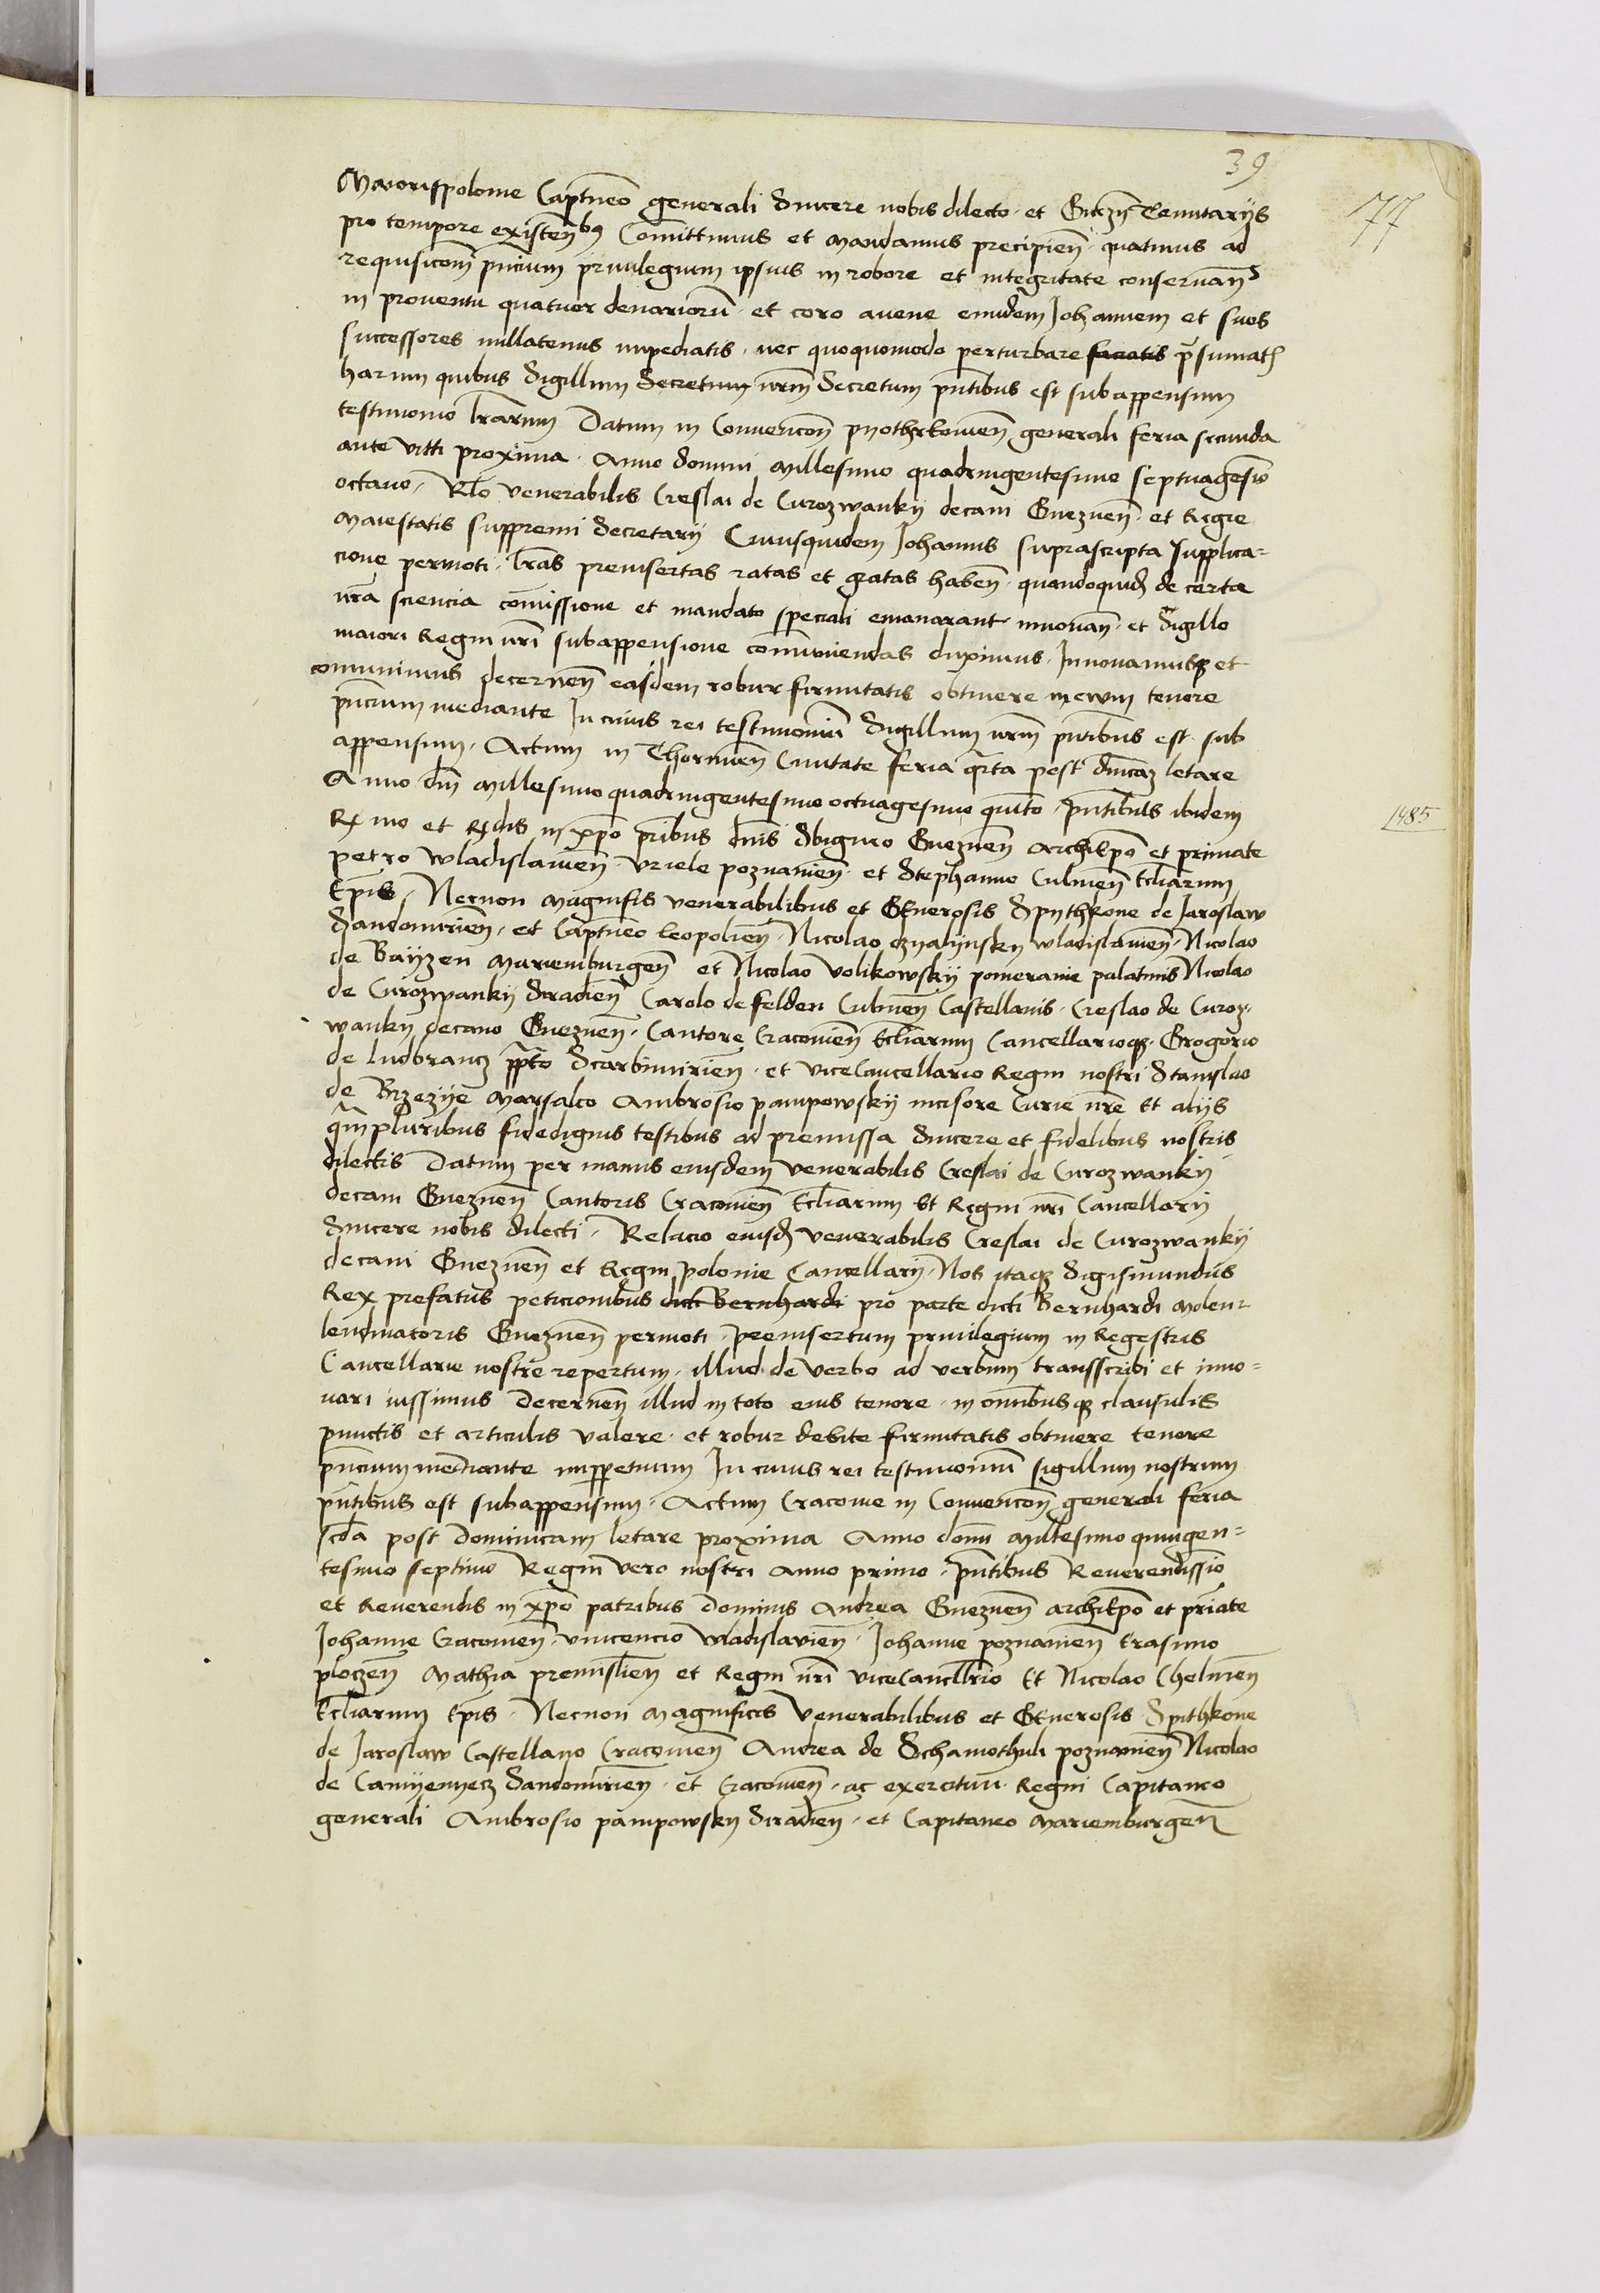 39
177
Maiorispolonie Captneo generali Sincere nobis dilecto et Gnezn Tenutarijs
pro tempore existenbus Comittimus et mandamus precipien quatinus ad
requisicom pncium priuilegium ipsius in robore et integritate conseruan
in prouentu quatuor denarioru et coro auene eundem Johannem et suos
successores nullatenus impediatis nec quoquomodo perturbare faciatis psumat
harum quibus Sigillum Secretum nrm Secretum pntibus est subappensum
testimonio lrarum Datum in Conuencon pyothrkowien generali feria secunda
ante viti proxima Anno domini millesimo quadringentesimo septuagesio
octauo Rlo venerabilis Creslai de Curozwanky decani Gneznen et Regie
Maiestatis suppremi Secretarij Cuiusquidem Johannis suprascripta supplica=
cione permoti lras preinsertas ratas et gratas haben quandoquid de certa
nra sciencia comissione et mandato speciali emanarant innouan et Sigillo
maiori Regni nri subappensione comuniendas duximus Innouamusq et
comunimus decernen easdem robur firmitatis obtinere in ewm tenore
pncium mediante In cuius rei testimoniu Sigillum nrm pntibus est sub
appensum Actum in Thorunien Ciuitate feria qrta post dnicaz letare
Anno dni millesimo quadringentesimo octuagesimo quinto pntibus ibidem
1485
Rmo et Rdis in xpo pribus dnis Sbigneo Gneznen Archiepo et primate
petro wladislauien vriele poznanien et Stephano Culmen Ecliarum
Epis Necnon Magnificis venerabilibus et Generosis Spythkone de Jaroslaw
Sandomirien et Captneo leopolien Nicolao Oznalynsky wladislauien Nicolao
de Bayzen Mariemburgen et Nicolao Volikowskij pomeranie palatinis Nicolao
de Curozwankij Siradien Carolo de felden Culmen Castellanis Creslao de Curoz
wanky decano Gneznen Cantore Cracouien Ecliarum Cancellarioq Gregorio
de ludbrancz ppto Scarbimirien et viceCancellario Regni nostri Stanislao
de Brzezije Marsalco Ambrosio pampowskij incisore Curie nre Et alijs
qmpluribus fidedignis testibus ad premissa Sincere et fidelibus nostris
dilectis Datum per manus eiusdem venerabilis Creslai de Curozwankij
decani Gneznen Cantoris Cracouien Ecliarum Et Regni nri Cancellarij
Sincere nobis dilecti Relacio eiusd venerabilis Creslai de Curozwankij
decani Gneznen et Regni polonie Cancellarij Nos itaq Sigismundus
Rex prefatus peticionibus dicti Bernhardi pro parte dicti Bernhardi molen=
lendinatoris Gneznen permoti preinsertum priuilegium in Regestris
Cancellarie nostre repertum illud de verbo ad verbum transscribi et inno=
uari iussimus Decernen illud in toto eius tenore in omibusq clausulis
punctis et articulis valere et robur debite firmitatis obtinere tenore
pncium mediante imppetuum In cuius rei testimoniu sigillum nostrum
pntibus est subappensum Actum Cracouie in Conuencon generali feria
scda post Dominicam letare proxima Anno domi millesimo quingen=
tesimo septimo Regni vero nostri Anno primo pntibus Reuerendissio
et Reuerendis in xpo patribus Dominis Andrea Gneznen Archiepo et priate
Johanne Cracouien vincencio wladislauien Johanne poznanien Erasimo
ploczen Mathia premislien et Regni nri viceCancllrio Et Nicolao Chelmen
Ecliarum Epis Necnon Magnificis venerabilibus et Generosis Spithkone
de Jaroslaw Castellano Cracouien Andrea de Schamothuli poznanien Nicolao
de Camyenyecz Sandomirien et Cracouien ac exercituu Regni Capitaneo
generali Ambrosio pampowsky Siradien et Capitaneo Mariemburgen